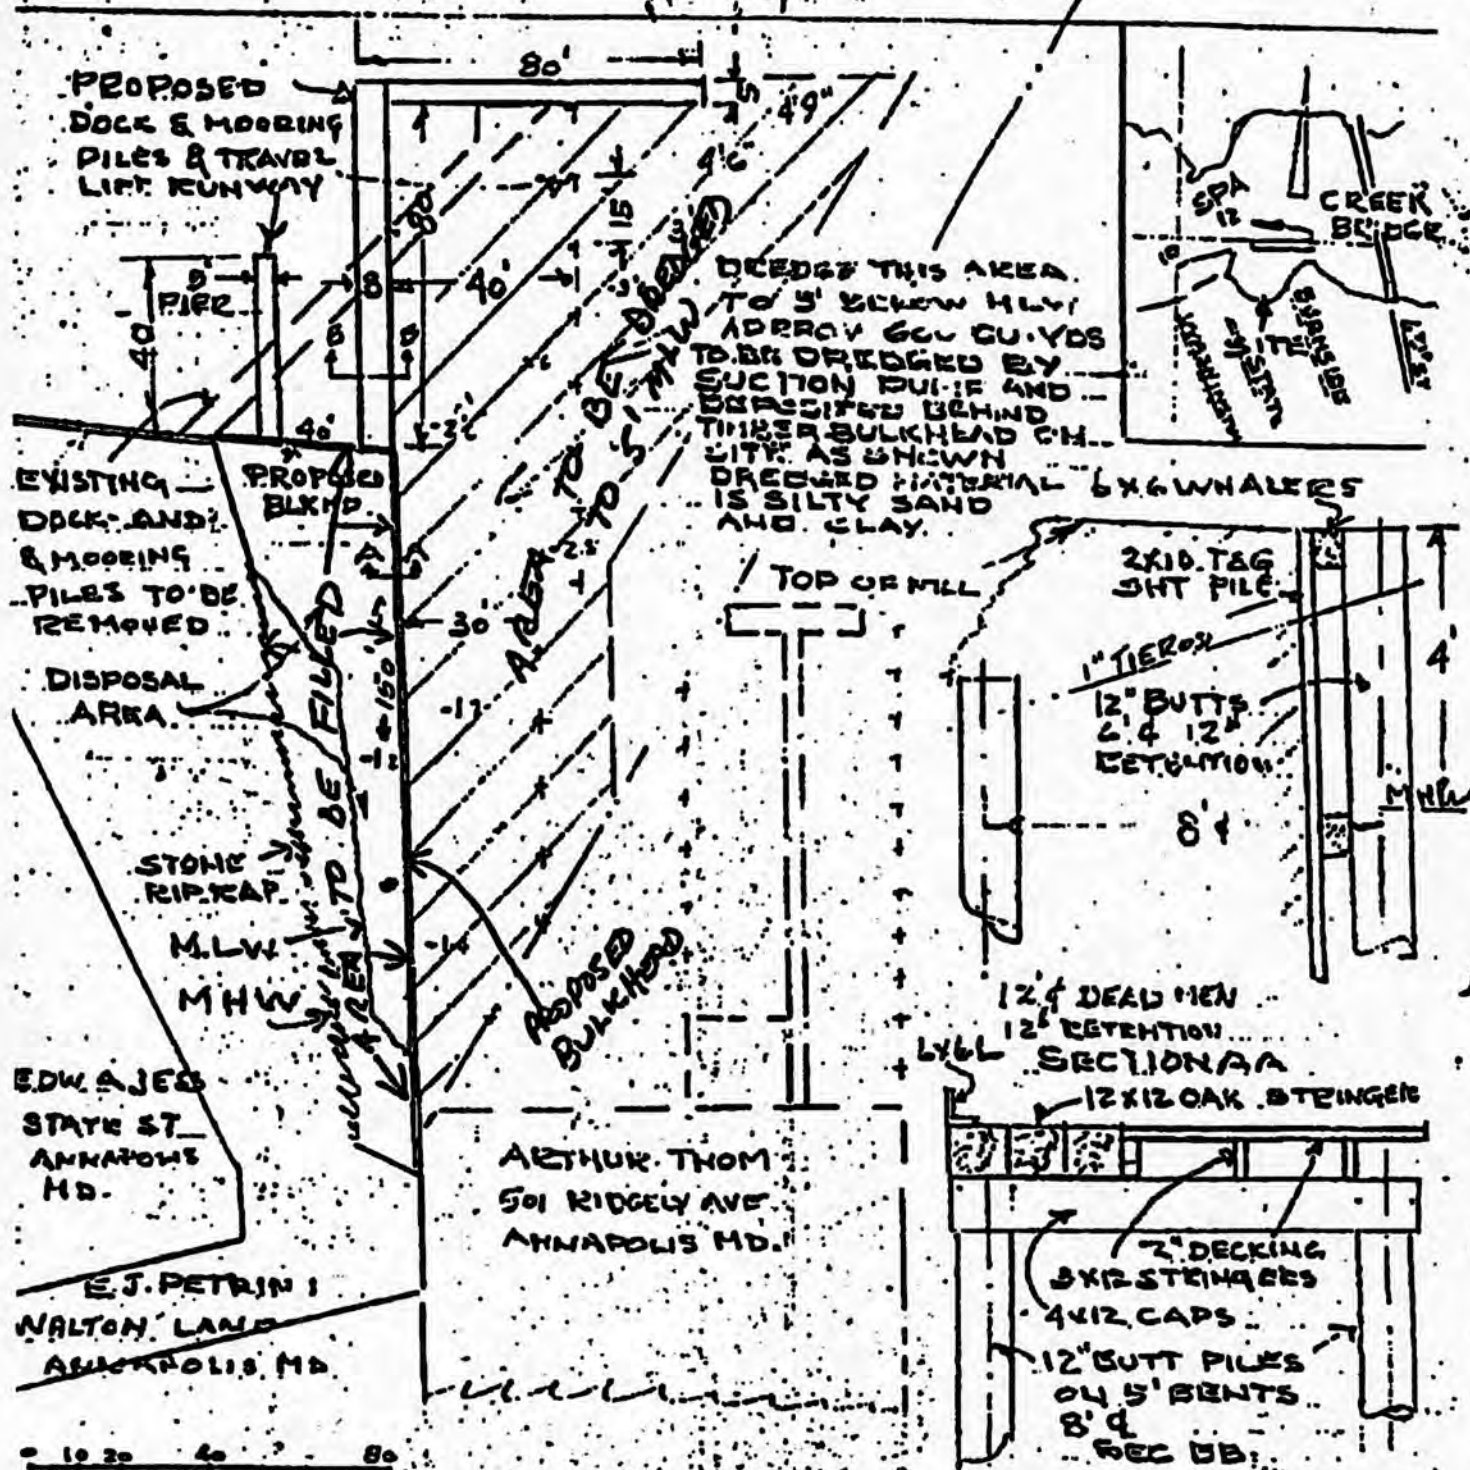 80'
PROPOSED
DOCK & MOORING
PILES & TRAVEL
LIFT RUNWAY
5'
4'9"
4'6"
15'
80'
8'
40'
5'
PIER
40'
B B
40'
AREA TO BE DREDGED
TO 5' MLW
DREDGE THIS AREA
TO 5' BELOW MLW
APPROX 600 CU. YDS
TO BE DREDGED BY
SUCTION AND
DEPOSITED BEHIND
TIMBER BULKHEAD ON
SITE AS SHOWN
DREDGED MATERIAL
IS SILTY SAND
AND CLAY.
SPA
CREEK
12
BRIDGE
10
SITE
BURNSIDE
STATE
EXISTING
DOCK AND
& MOORING
PILES TO BE
REMOVED
PROPOSED
BLKHD
A A
30'
-2.5
DISPOSAL
AREA
150'
AREA TO BE FILLED
STONE
RIP-RAP
M.L.W.
MHW
-14
PROPOSED
BULKHEAD
TOP OF FILL
6X6 WHALERS
2X10 T&G
SHT PILE
1" TIEROD
12" BUTTS
12'
RETENTION
4'
MHW
8' ¢
12" ¢ DEAD MEN
12' RETENTION
SECTION AA
12X12 OAK STRINGER
2" DECKING
3X12 STRINGERS
4X12 CAPS
12" BUTT PILES
ON 5' BENTS
8' ¢
SEC BB
EDW. A JESS
STATE ST
ANNAPOLIS
MD.
E.J. PETRINI
WALTON LANE
ANNAPOLIS MD
ARTHUR THOM
501 RIDGELY AVE
ANNAPOLIS MD.
0 10 20 40 80